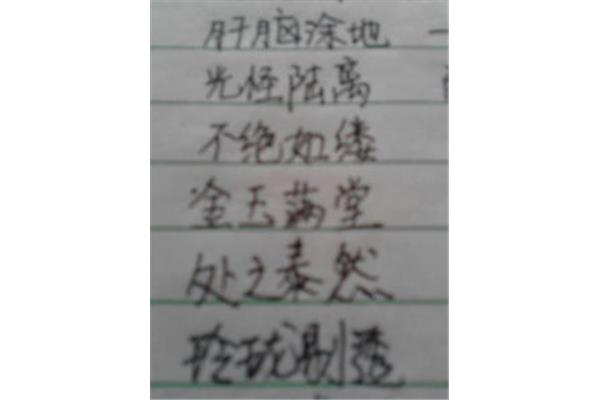 肝脑涂地
光怪陆离
不绝如缕
金玉满堂
处之泰然
玲珑剔透